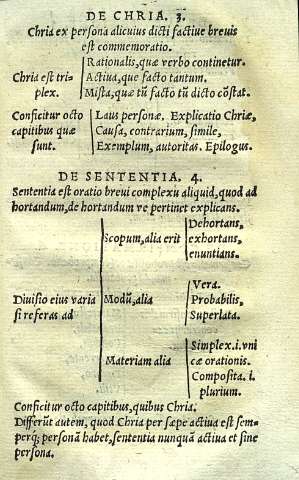 DE CHRIA. 3.
Chria ex personâ alicuius dicti factiue breuis
est commemoratio.
Rationalis, quæ verbo continetur.
Chria est tri-
plex.
Actiua, que facto tantum.
Mista, quæ tū facto tū dicto cōstat.
Conficitur octo
capitibus quæ
sunt.
Laus personæ. Explicatio Chriæ,
Causa, contrarium, simile,
Exemplum, autoritas. Epilogus.
DE SENTENTIA. 4.
Sententia est oratio breui complexu aliquid, quod ad
hortandum, de hortandum ve pertinet explicans.
Scopum, alia erit
Dehortans,
exhortans,
enuntians.
Diuisio eius varia
si referas ad
Modū, alia
Vera.
Probabilis,
Superlata.
Materiam alia
Simplex.i.vni
cæ orationis.
Composita. i.
plurium.
Conficitur octo capitibus, quibus Chria.
Differūt autem, quod Chria per sæpe actiua est sem-
perq; personā habet, sententia nunquā actiua et sine
persona.